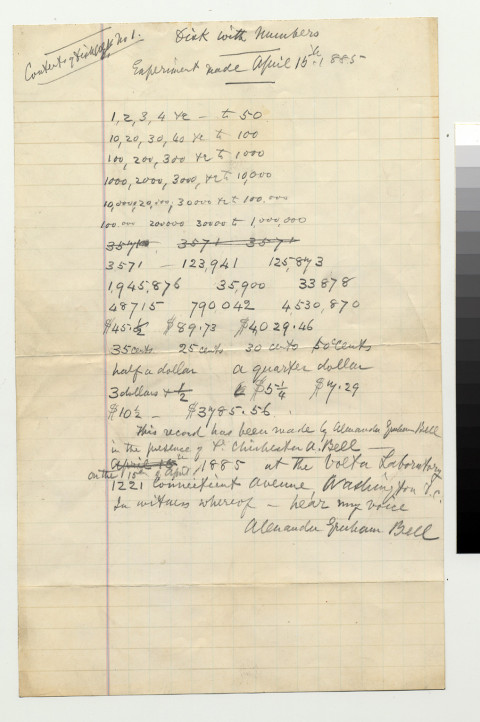 Contents of Disk No 1.
Disk with Numbers
Experiment made April 15th 1885
1, 2, 3, 4 &c — to 50
10, 20, 30, 40 &c to 100
100, 200, 300 &c to 1000
1000, 2000, 3000, &c to 10,000
10,000, 20,000, 30000 &c to 100,000
100 000 200000 30000 to 1,000,000
3571 3571 3571
3571 — 123,941 125,873
1,945,876 35,900 33878
48715 790042 4,530,870
$45.½ $89.73 $4029.46
35 cents 25 cents 30 cents 50 cents
half a dollar a quarter dollar
3 dollars + ½ $5¼ $7.29
$10½ — $3785.56.
This record has been made by Alexander Graham Bell
in the presence of Chichester A. Bell —
April 15th
on the 15th of April, 1885 at the Volta Laboratory
1221 Connecticut Avenue, Washington D.C.
In witness whereof — hear my voice
Alexander Graham Bell